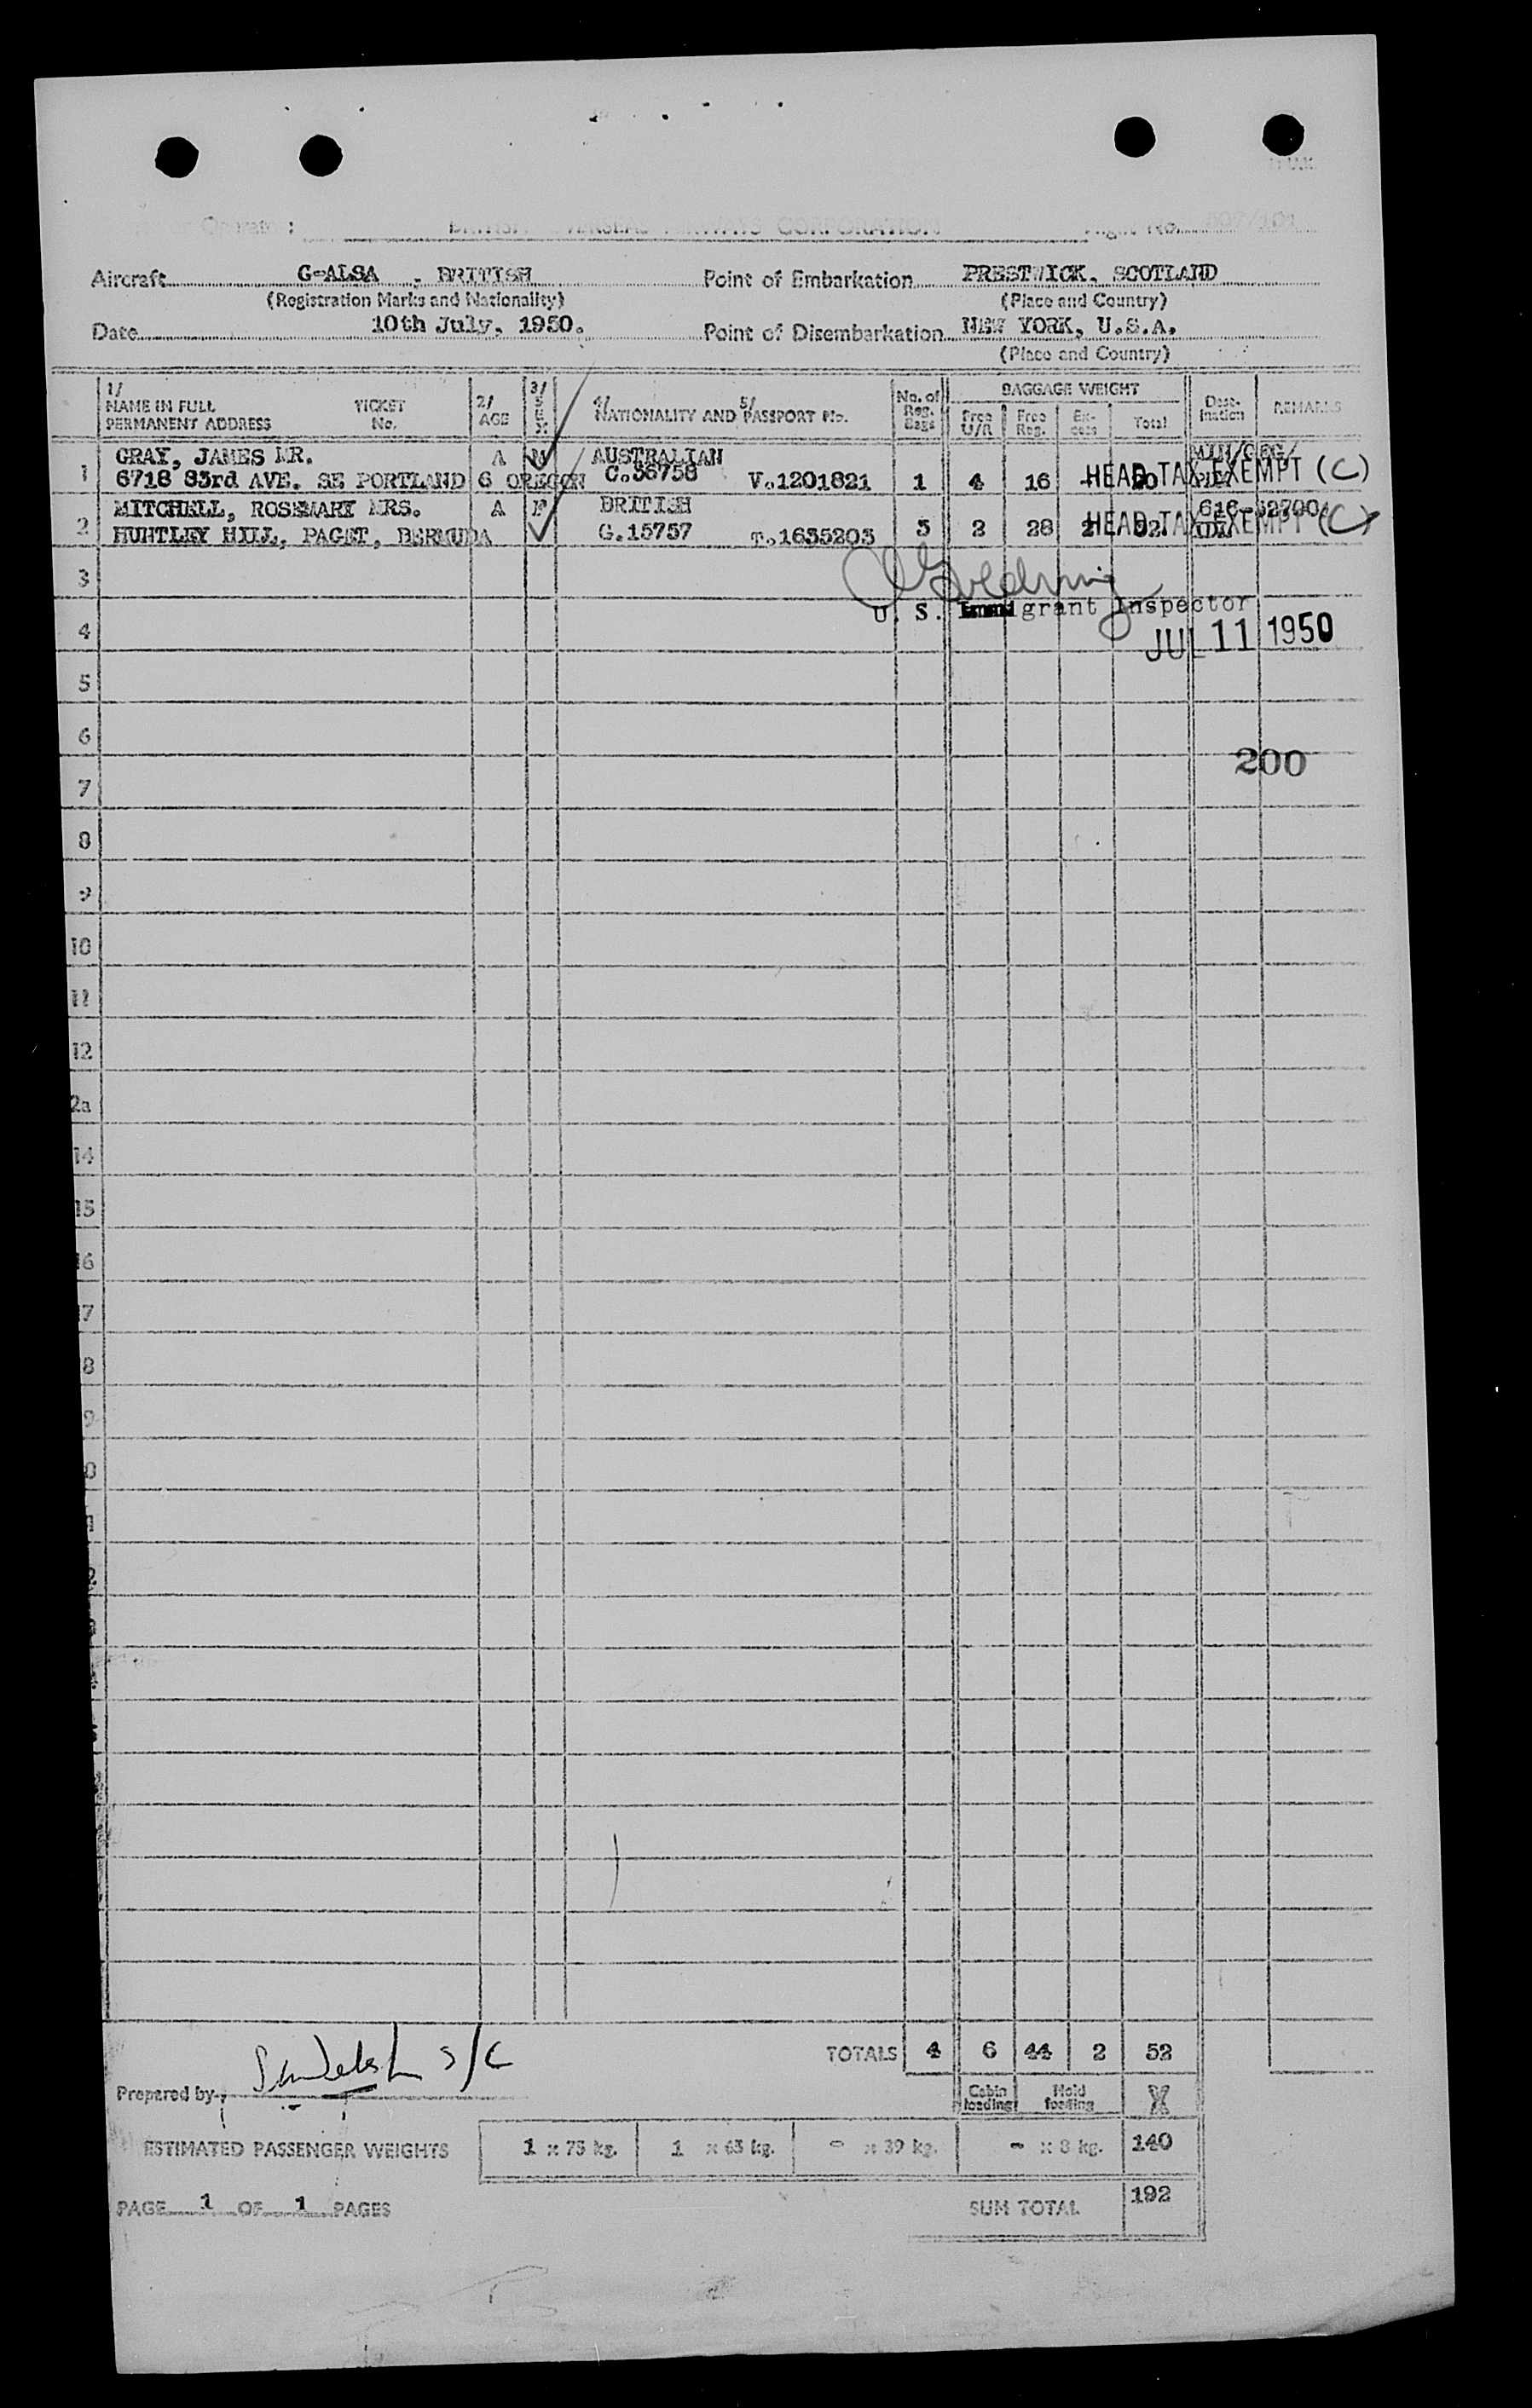 Operator: BRITISH OVERSEAS AIRWAYS CORPORATION Flight No.
Aircraft G-ALSA , BRITISH Point of Embarkation PRESTWICK, SCOTLAND
(Registration Marks and Nationality) (Place and Country)
Date 10th July, 1950. Point of Disembarkation NEW YORK, U.S.A.
(Place and Country)
1/ NAME IN FULL TICKET 2/ 3/ 4/ 5/ No. of BAGGAGE WEIGHT Dest- REMARKS
PERMANENT ADDRESS No. AGE SEX NATIONALITY AND PASSPORT No. Reg. Bags Free U/R Free Reg. Ex-cess Total ination
1 GRAY, JAMES MR. A M AUSTRALIAN
6718 83rd AVE. SE PORTLAND 6 OREGON C.36758 V.1201821 1 4 16 - 20 HEAD TAX EXEMPT (C)
2 MITCHELL, ROSEMARY MRS. A F BRITISH
HUNTLEY HILL, PAGET, BERMUDA G.15757 T.1635203 3 2 28 2 32 HEAD TAX EXEMPT (C)
3
U. S. Immigrant Inspector
4 JUL 11 1950
5
6
200
7
8
9
10
11
12
2a
14
15
16
7
8
9
0
TOTALS 4 6 44 2 52
Prepared by Cabin loading Hold loading
ESTIMATED PASSENGER WEIGHTS 1 x 75 kg. 1 x 65 kg. - x 39 kg. - x 8 kg. 140
PAGE 1 OF 1 PAGES SUM TOTAL 192